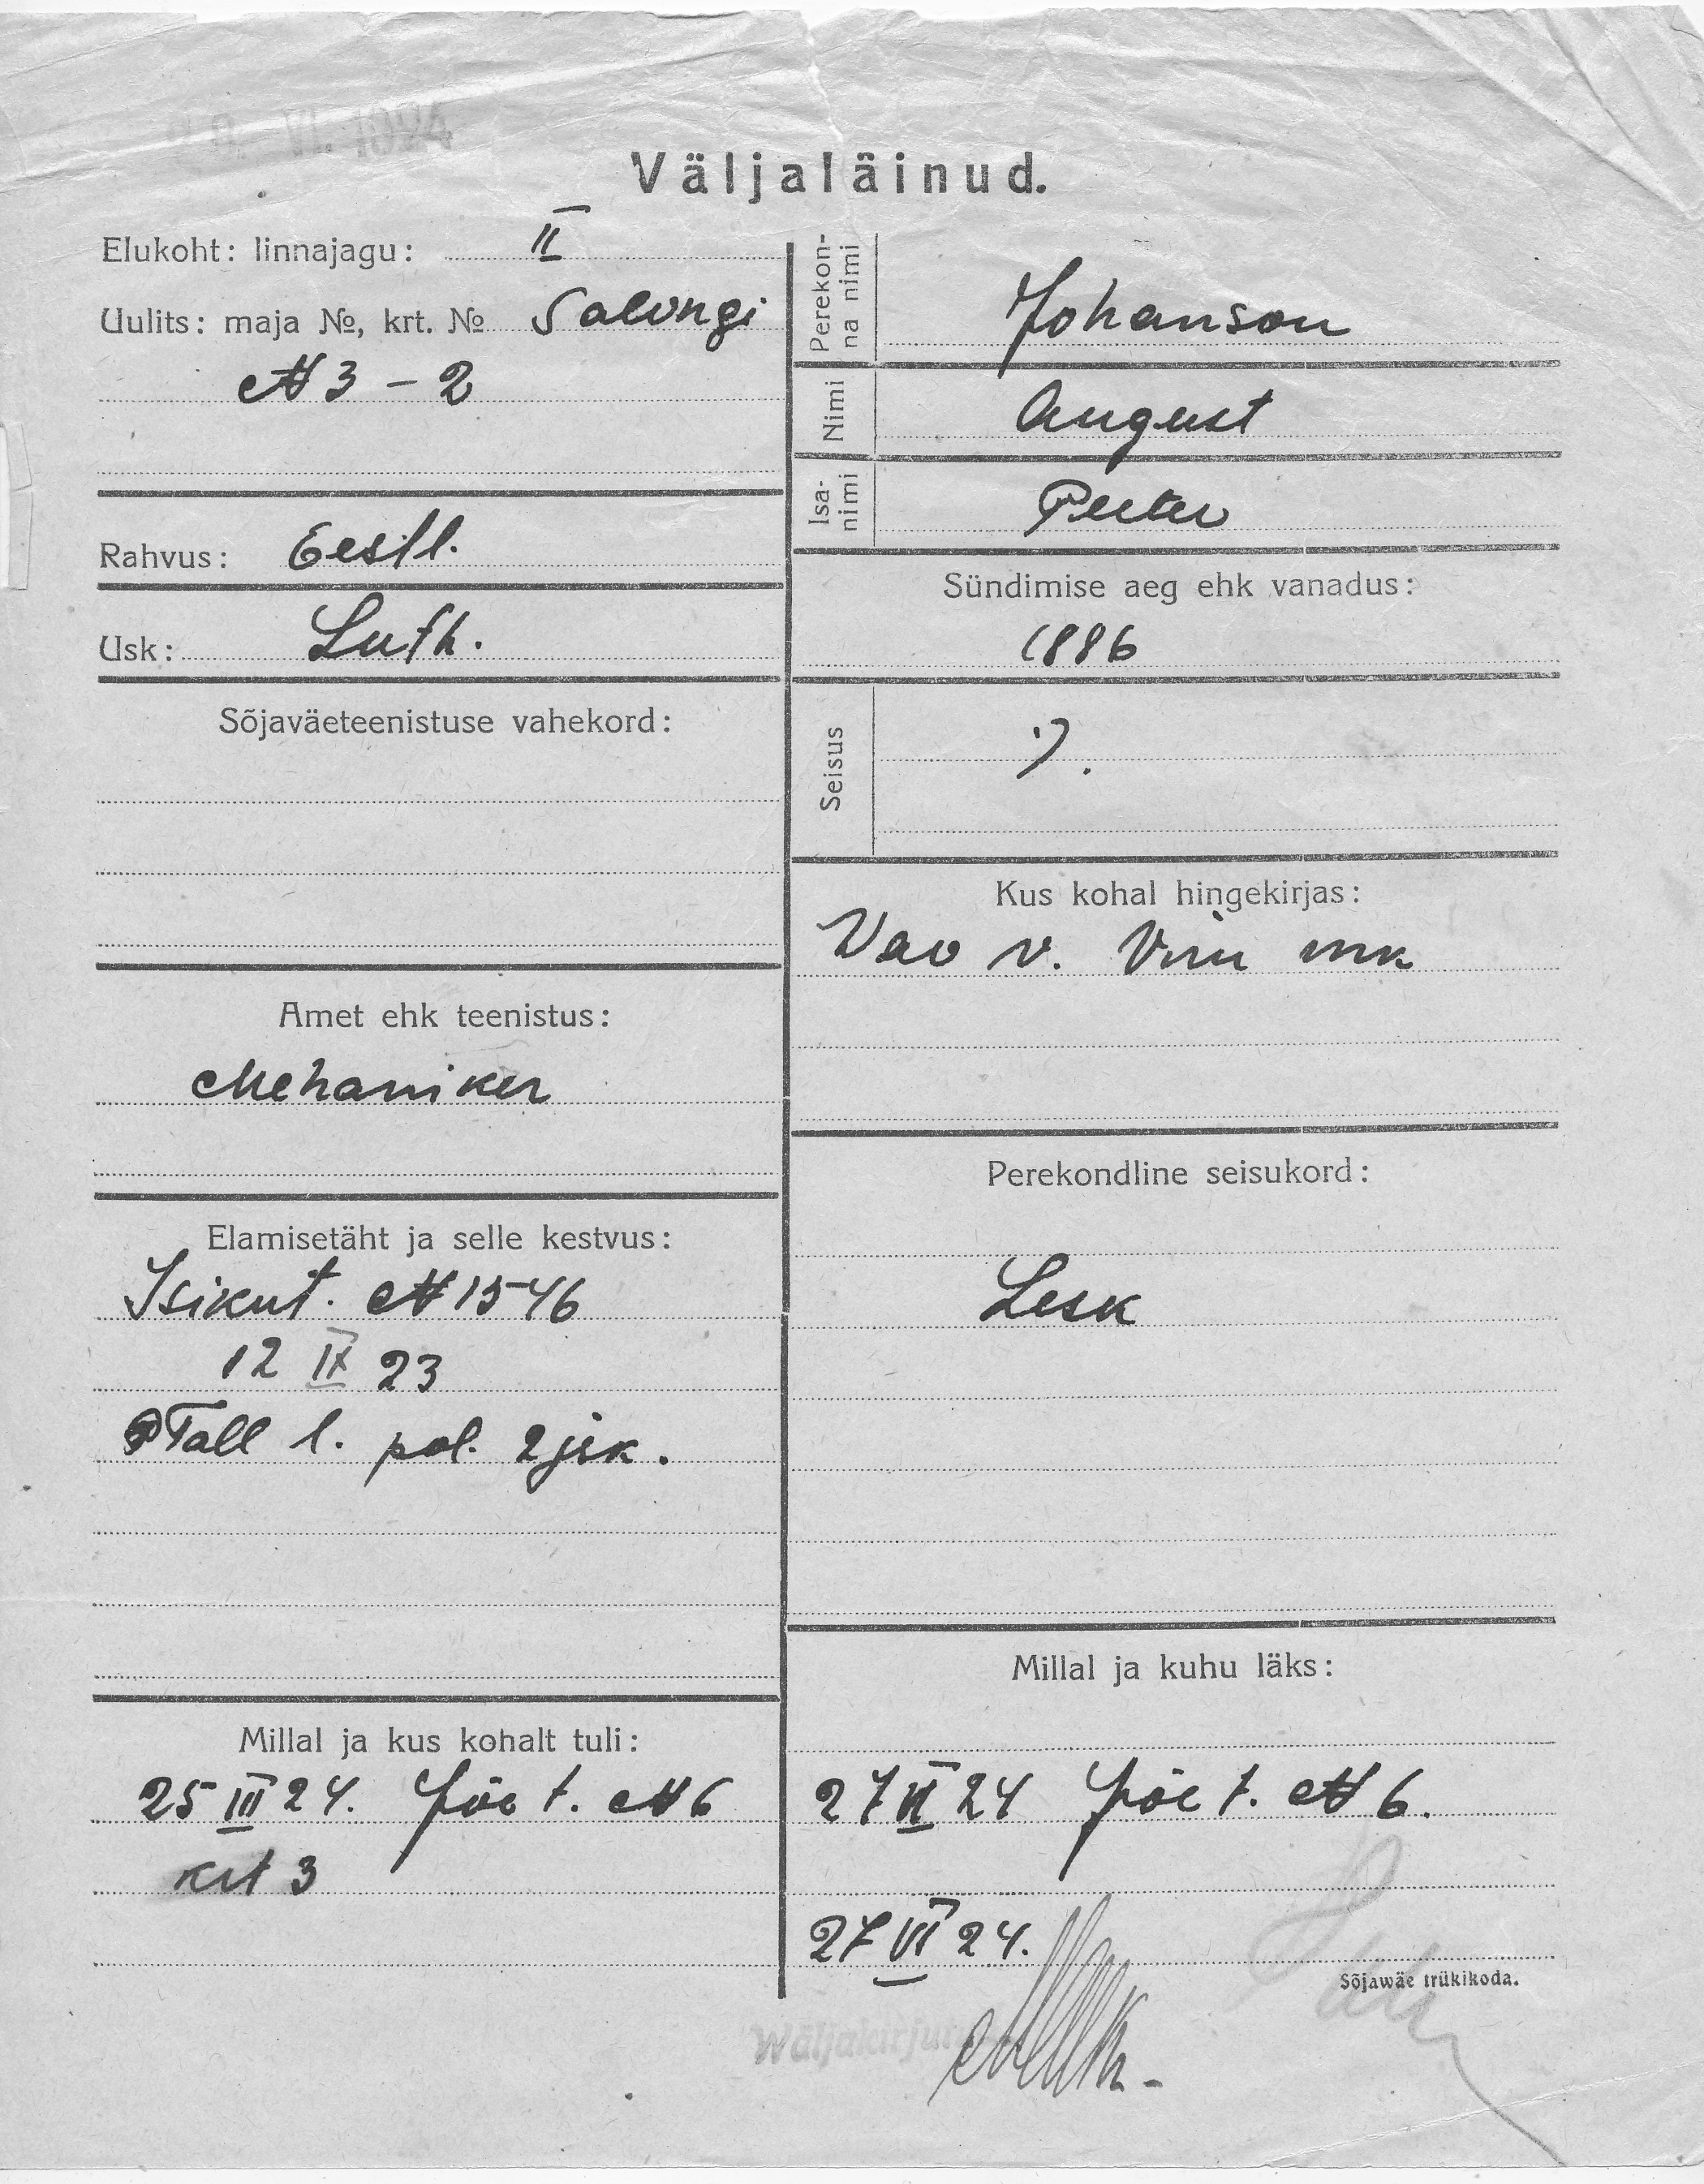 VI. 1924
Väljaläinud.
Elukoht: linnajagu: II
Uulits: maja №, krt. № Salongi
№ 3 - 2
Rahvus: Eestl.
Usk: Luth.
Sõjaväeteenistuse vahekord:
Amet ehk teenistus:
Mehaniker
Elamisetäht ja selle kestvus:
Isikut. № 1546
12 IX 23
Tall l. pol. 2 jsk.
Millal ja kus kohalt tuli:
25 III 24. Jõe t. № 6
krt 3
Perekon-
na nimi
Johanson
Nimi August
Isa-
nimi
Peeter
Sündimise aeg ehk vanadus:
1886
Seisus
Kus kohal hingekirjas:
Vao v. Viru mk
Perekondline seisukord:
Lesk
Millal ja kuhu läks:
27 VI 24 Jõe t. № 6.
27 VI 24.
Sõjawäe trükikoda.